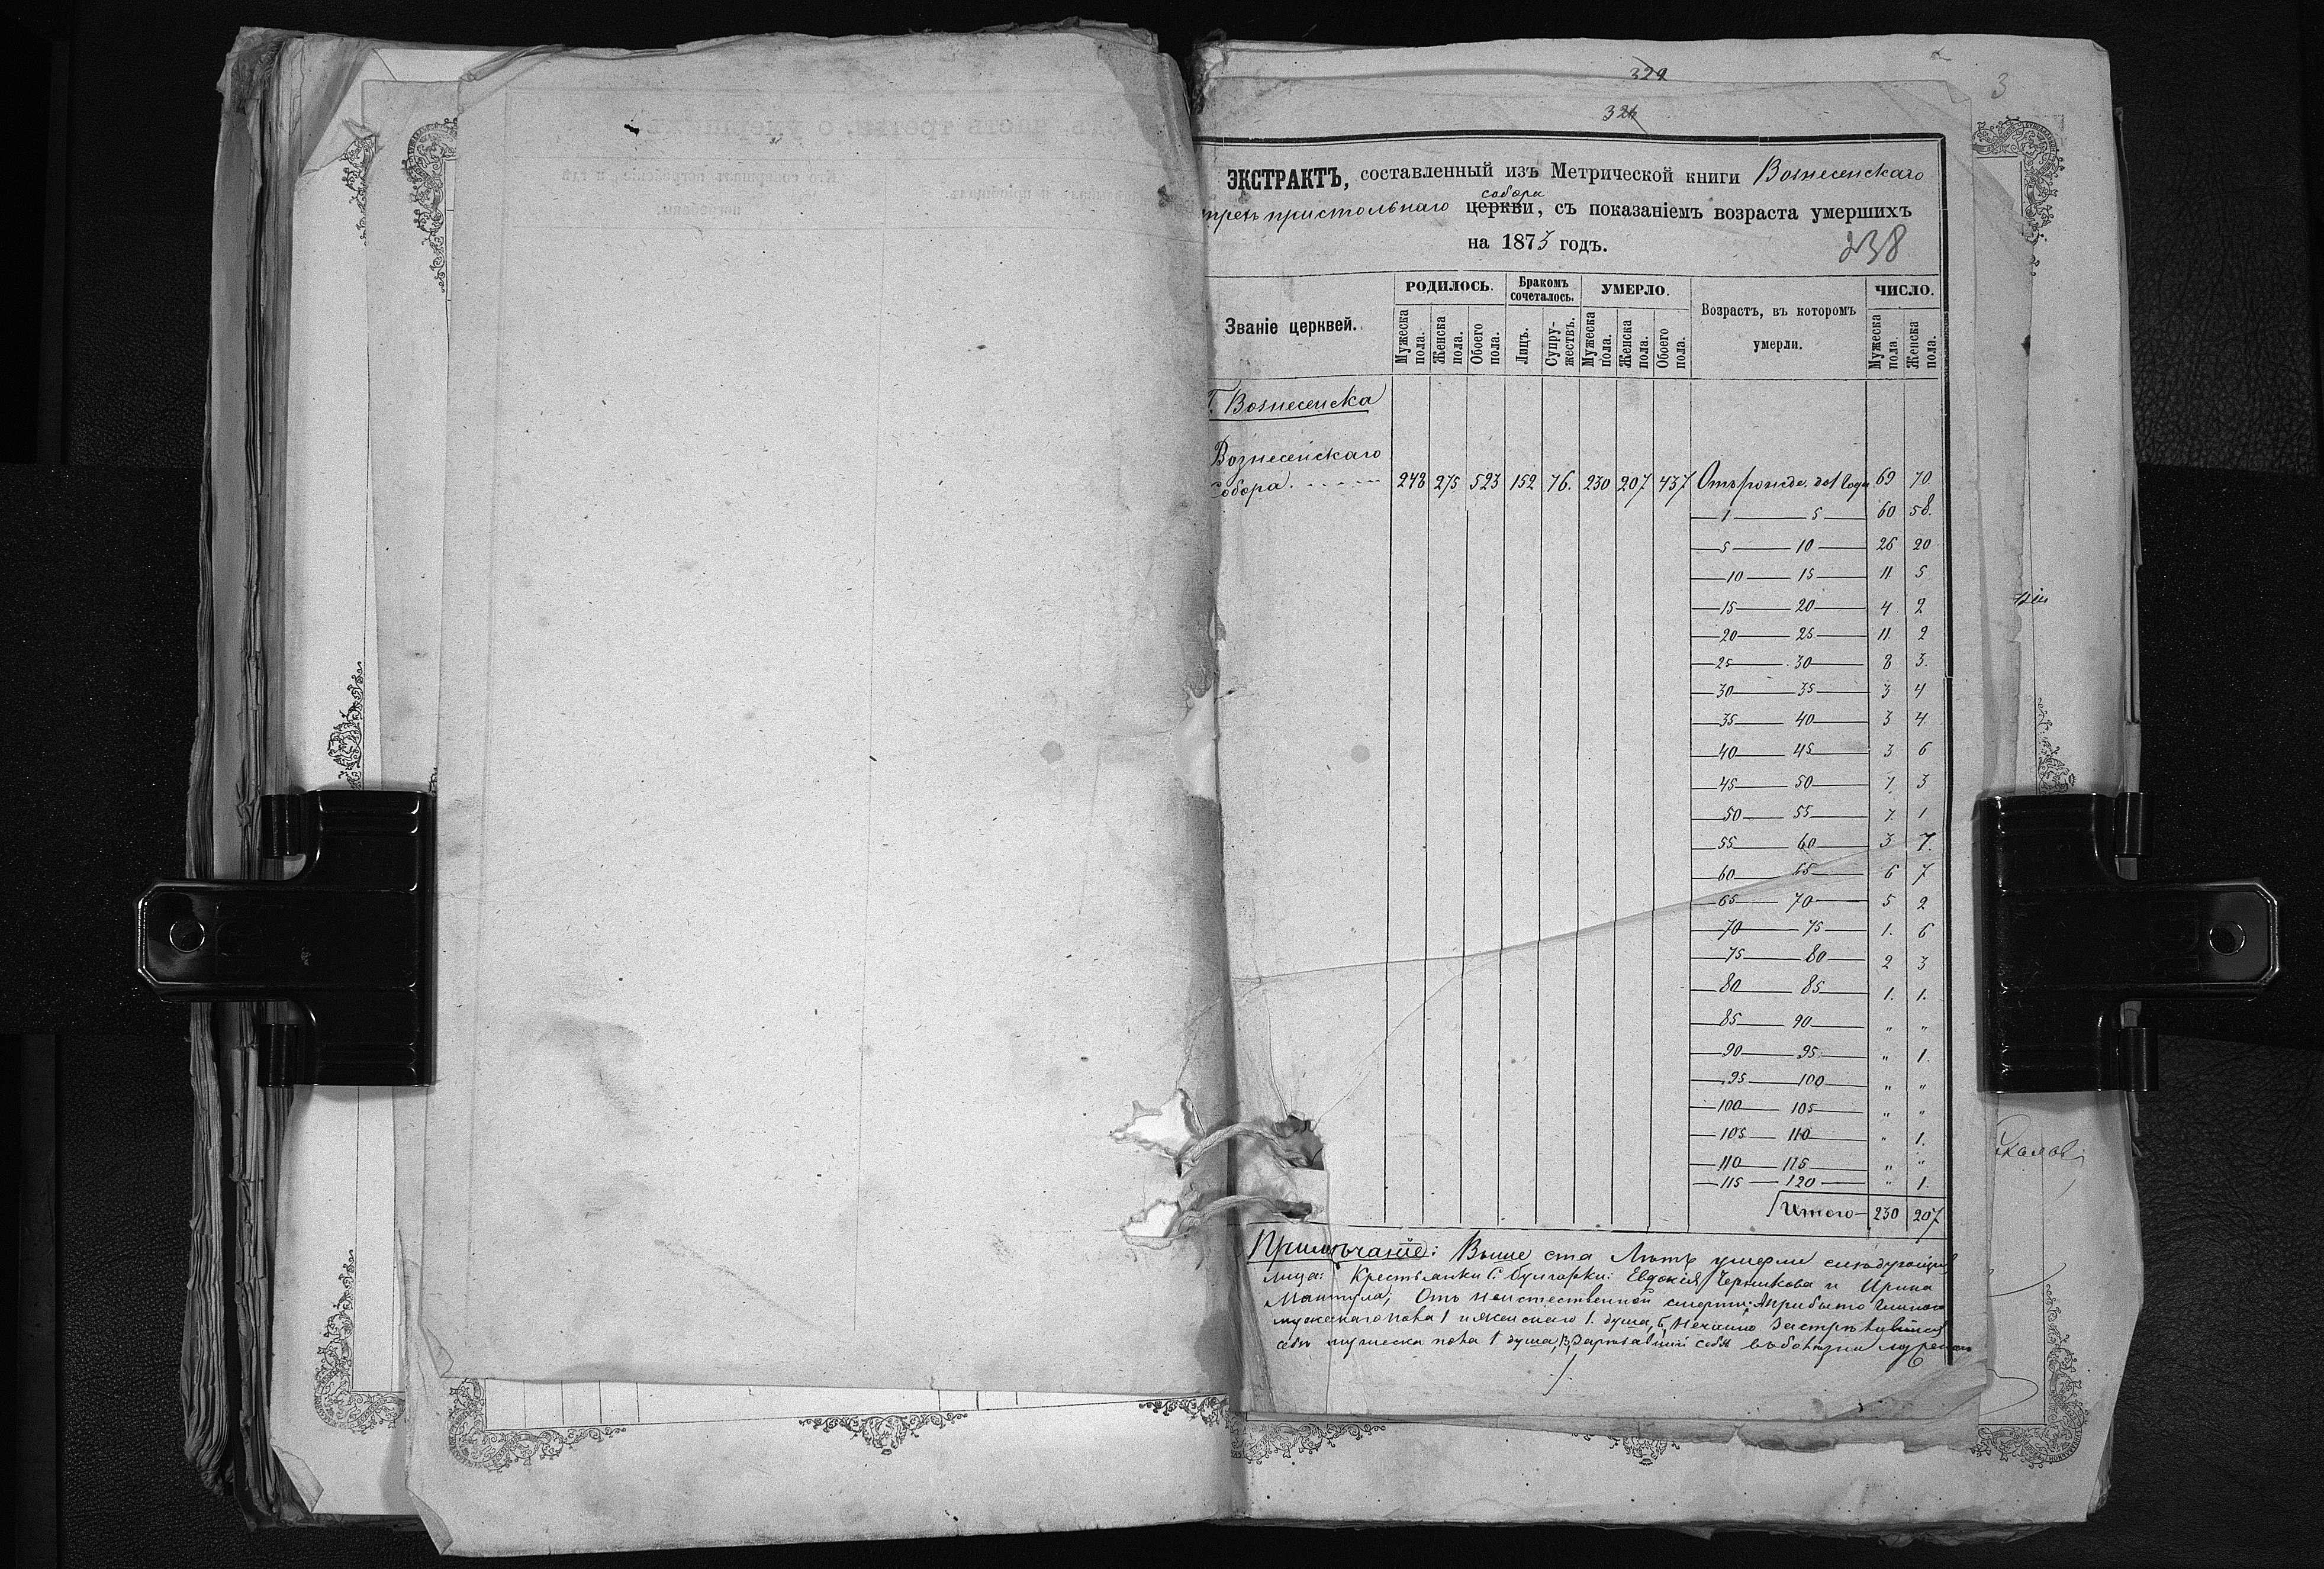 329
326
3
ЭКСТРАКТЪ, составленный изъ Метрической книги Вознесенскаго
собора
трехпристольнаго церкви, съ показаніемъ возраста умершихъ
на 1873 годъ.
238
Званіе церквей.
РОДИЛОСЬ.
Бракомъ сочеталось.
УМЕРЛО.
Возрастъ, въ которомъ умерли.
ЧИСЛО.
Мужеска пола. Женска пола. Обоего пола. Лицъ. Супружествъ. Мужеска пола. Женска пола. Обоего пола. Мужеска пола. Женска пола.
Г. Вознесенска
Вознесенскаго
Собора. 248 275 523 152 76. 230 207 437 Отъ рожде. до 1 года 69 70
1 — 5 60 58.
5 — 10 26 20
10 — 15 11 5
15 — 20 4 2
20 — 25 11. 2
25 — 30 8 3.
30 — 35 3 4
35 — 40 3 4
40 — 45 3 6
45 — 50 7 3
50 — 55 7 1
55 — 60 3 7.
60 — 65 6 7
65 — 70 5 2
70 — 75 1. 6
75 — 80 2 3
80 — 85 1. 1.
85 — 90 " "
90 — 95 " 1.
95 — 100 " "
100 — 105 " "
105 — 110 " 1.
110 — 115 " "
115 — 120 " 1.
Итого 230 207
Примѣчаніе: Выше ста Лѣтъ умерли слѣдующія
лица: Крестьянки С. Булгарки: Евдокія Черникова и Ирина
Отъ неестественной смерти:
мужескаго пола 1 и женскаго 1. душа, Б, Нечаянно Застрѣлившій
себя мужеска пола 1 душа, В, Зарѣзавшій себя въ болѣзни